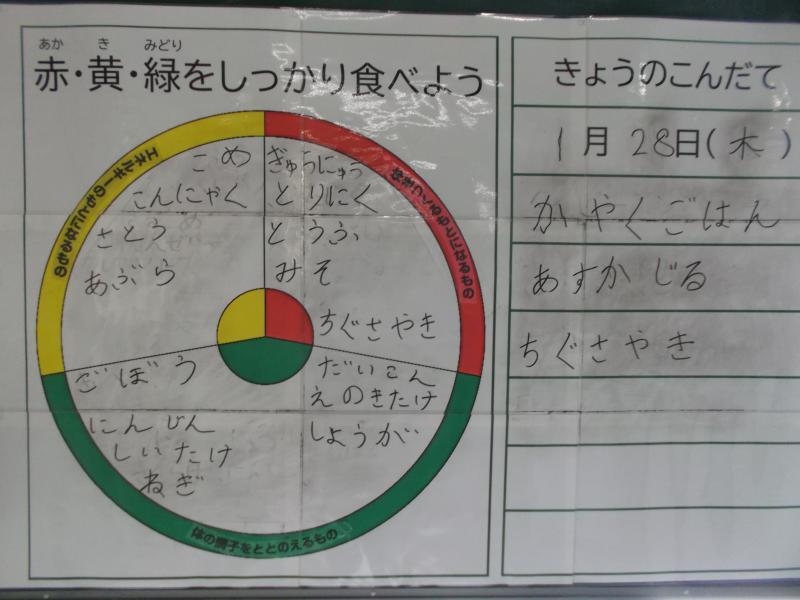 あか き みどり
赤・黄・緑をしっかり食べよう
エネルギーのもとになるもの
体をつくるもとになるもの
体の調子をととのえるもの
こめ
こんにゃく
さとう
あぶら
ぎゅうにゅう
とりにく
とうふ
みそ
ちぐさやき
ごぼう
にんじん
しいたけ
ねぎ
だいこん
えのきたけ
しょうが
きょうのこんだて
1月28日(木)
かやくごはん
あすかじる
ちぐさやき